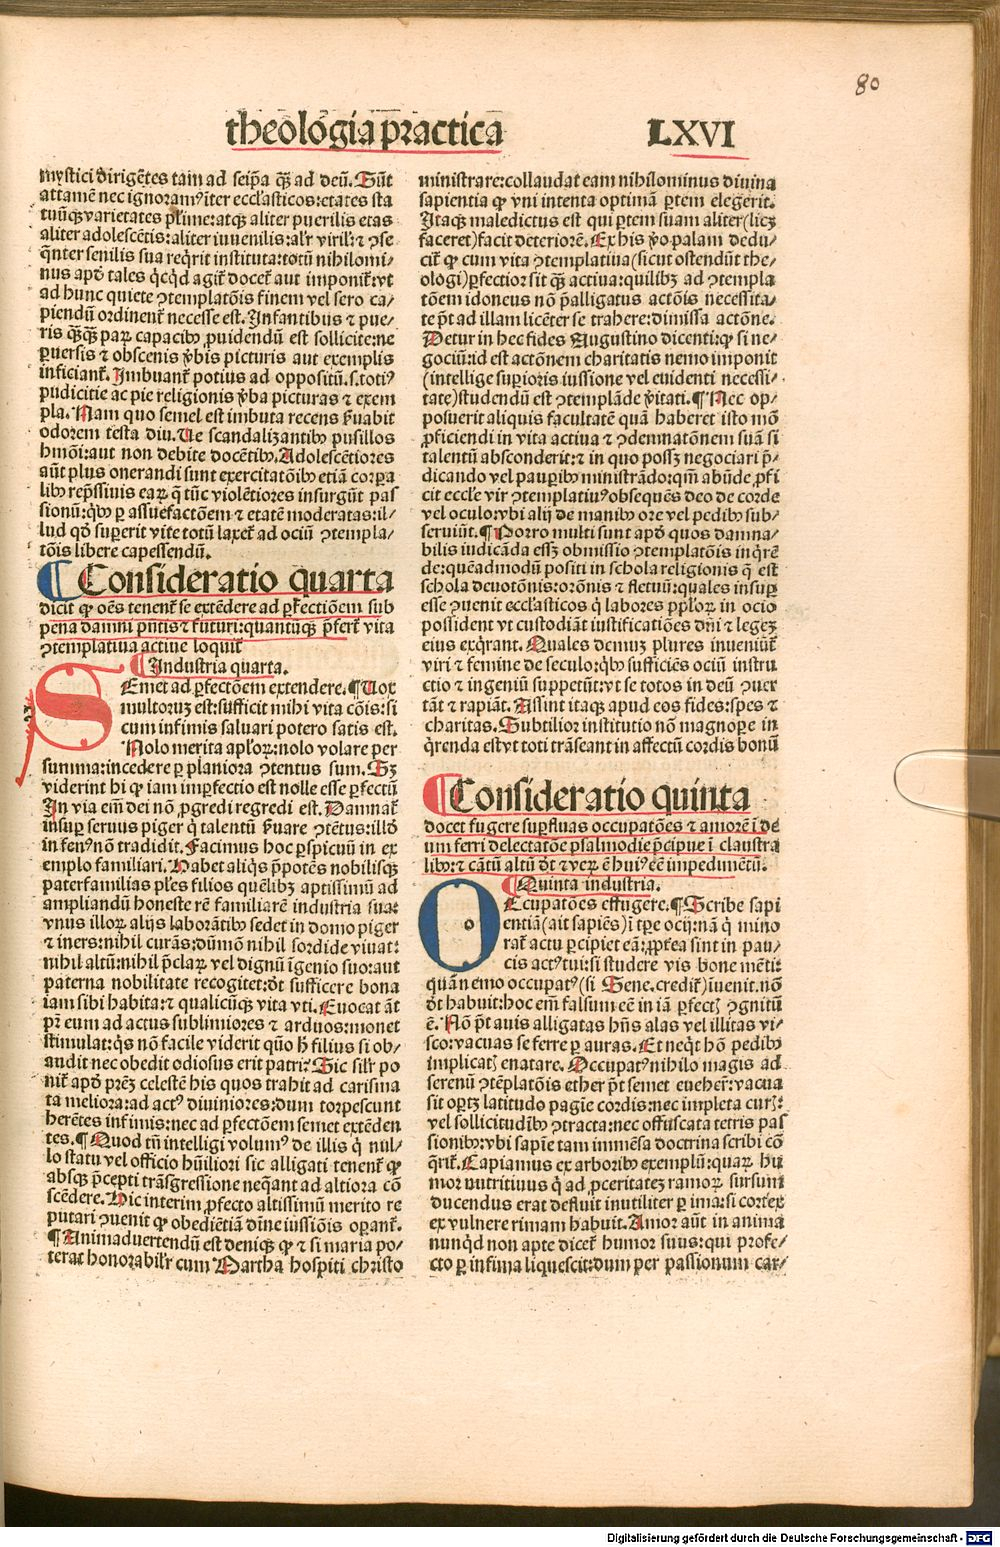 80
theologia practica LXVI
mystici dirigētes tam ad seip̄a q̄ȝ ad deū. Sūt
attamē nec ignoramꝰ iter eccl̄asticos: etates sta
tuūqȝ varietates pl̄ime: atqȝ aliter puerilis etas
aliter adolescētis: aliter iuuenilis: al'r viril' ⁊ ꝯse
q̄nter senilis sua req̄rit instituta: totū nihilomi/
nus apd' tales q̇cq̇d agit' docet' aut imponit': vt
ad hunc quiete ꝯtemplatōis finem vel sero ca/
piendū ordinent' necesse est. Infantibus ⁊ pue/
ris q̄ȝq̄ȝ paꝝ capacibꝰ ꝓuidendū est sollicite: ne
ꝑuersis ⁊ obscenis v̄bis picturis aut exemplis
inficiant'. Imbuant' potius ad oppositū. s. totiꝰ
pudicitie ac pie religionis v̄ba picturas ⁊ exem
pla. Nam quo semel est imbuta recens ẜuabit
odorem testa diu. Ue scandalizantibꝰ pusillos
hmōi: aut non debite docētibꝰ. Adolescētiores
aūt plus onerandi sunt exercitatōibꝰ etiā corꝑa
libꝰ rep̄ssiuis eaꝝ q̄ tūc violētiores insurgūt pas
sionū: q̇bꝰ ꝑ assuefactōem ⁊ etatē moderatas: il/
lud qd' suꝑerit vite totū laxet' ad ociū ꝯtempla/
tōis libere capessendū.
¶ Consideratio quarta
dicit ꝙ oēs tenent' se extēdere ad ꝑfectiōem sub
pena damni p̄ntis ⁊ futuri: quantūqȝ p̄fert' vita
ꝯtemplatiua actiue loquit'
¶ Industria quarta.
SEmet ad ꝑfectōem extendere. ¶ Uox
multoruȝ est: sufficit mihi vita cōis: si
cum infimis saluari potero satis est.
Nolo merita apl'oꝝ: nolo volare per
summa: incedere ꝑ planiora ꝯtentus sum. Sȝ
viderint hi ꝙ iam imꝑfectio est nolle esse ꝑfectū
In via em̄ dei nō ꝓgredi regredi est. Damnat'
insuꝑ seruus piger q̇ talentū ẜuare ꝯtētus: illd'
in fenꝰ nō tradidit. Facimus hoc ꝑspicuū in ex
emplo familiari. Habet aliq̇s p̄potēs nobilisqȝ
paterfamilias ples filios quēlibȝ aptissimū ad
ampliandū honeste rē familiarē industria sua:
vnus illoꝝ alijs laborātibꝰ sedet in domo piger
⁊ iners: nihil curās: dūmō nihil sordide viuat:
nihil altū: nihil p̄claꝝ vel dignū īgenio suo: aut
paterna nobilitate recogitet: d't sufficere bona
iam sibi habita: ⁊ qualicūqȝ vita vti. Euocat āt
pr̄ eum ad actus sublimiores ⁊ arduos: monet
stimulat: q̇s nō facile viderit quō ẖ filius si ob/
audit nec obedit odiosus erit patri: Sic sil'r po
nit' apd' prēȝ celestē his quos trahit ad carisma
ta meliora: ad actꝰ diuiniores: dum torpescunt
herētes infimis: nec ad ꝑfectōem semet extēden
tes. ¶ Quod tn̄ intelligi volumꝰ de illis q̇ nul/
lo statu vel officio hūiliori sic alligati tenent' ꝙ
absqȝ p̄cepti trāsgressione neq̄ant ad altiora cō
scēdere. Hic interim ꝓfecto altissimū merito re
putari ꝯuenit ꝙ obediētiā dīne iussiōis oꝑant'.
¶ Animaduertendū est deniqȝ ꝙ ⁊ si maria po/
terat honorabil'r cum Martha hospiti christo
ministrare: collaudat eam nihilominus diuina
sapientia ꝙ vni intenta optimā ꝑtem elegerit.
Itaqȝ maledictus est qui ꝑtem suam aliter (licȝ
faceret) facit deteriorē. Ex his ṽo palam dedu/
cit' ꝙ cum vita ꝯtemplatiua (sicut ostendūt the/
ologi) ꝑfectior sit q̄ȝ actiua: quilibȝ ad ꝯtempla
tōem idoneus nō p̄alligatus actōis necessita/
te p̄t ad illam licēter se trahere: dimissa actōne.
Detur in hec fides Augustino dicenti: ꝙ si ne/
gociū: id est actōnem charitatis nemo imponit
(intellige suꝑioris iussione vel euidenti necessi/
tate) studendū est ꝯtemplāde v̄itati. ¶ Nec op/
posuerit aliquis facultatē quā haberet isto mō
ꝓficiendi in vita actiua ⁊ ꝯdemnatōnem suā si
talentū absconderit: ⁊ in quo possȝ negociari p̄/
dicando vel pauꝑibꝰ ministrādo: qm̄ abūde ꝓfi
cit eccl'e vir ꝯtemplatiuꝰ obsequēs deo de corde
vel oculo: vbi alij de manibꝰ ore vel pedibꝰ sub/
seruiūt. ¶ Porro multi sunt apd' quos damna/
bilis iudicāda essȝ obmissio ꝯtemplatōis inq̇rē
de: quēadmodū positi in schola religionis q̄ est
schola deuotōnis: orōnis ⁊ fletuū: quales insuꝑ
esse ꝯuenit eccl'asticos q̇ labores ppl'oꝝ in ocio
possident vt custodiāt iustificatiōes dn̄i ⁊ legeȝ
eius exq̇rant. Quales demuȝ plures inueniūt'
viri ⁊ femine de seculo: q̇bꝰ sufficiēs ociū instru
ctio ⁊ ingeniū suppetūt: vt se totos in deū ꝯuer
tāt ⁊ rapiāt. Assint itaqȝ apud eos fides: spes ⁊
charitas. Subtilior institutio nō magnoꝑe in
q̇renda est vt toti trāseant in affectū cordis bonū
¶ Consideratio quinta
docet fugere suꝑfluas occupatōes ⁊ amorē ī de
um ferri delectatōe psalmodie p̄cipue ī claustra
libꝰ: ⁊ cātū altū d't ⁊ veꝝ ē huiꝰ eē impedimētū.
¶ Quinta industria.
OEcupatōes effugere. ¶ Scribe sapi
entiā (ait sapiēs) ī tꝑe ocij: nā q̇ mino
rat' actu ꝑcipiet eā: ꝓptea sint in pau/
cis actꝰ tui: si studere vis bone mēti:
quā nemo occupatꝰ (si Sene. credit') īuenit. nō
d't habuit: hoc em̄ falsum eē in iā ꝑfectȝ ꝯgnitū
ē. Nō p̄t auis alligatas hn̄s alas vel illitas vi/
sco: vacuas se ferre ꝑ auras. Et neq̇t hō pedibꝰ
implicatȝ enatare. Occupatꝰ nihilo magis ad
serenū ꝯtēplatōis ether p̄t semet euehere: vacua
sit oꝑtȝ latitudo pagie cordis: nec impleta curȝ:
vel sollicitudībꝰ ꝯtracta: nec offuscata tetris pas
sionibꝰ: vbi sapiē tam immēsa doctrina scribi cō
q̄rit'. Capiamus ex arboribꝰ exemplū: quaꝝ hu
mor nutritiuus q̇ ad ꝓceritateȝ ramoꝝ sursum
ducendus erat defluit inutiliter ꝑ ima: si cortex
ex vulnere rimam habuit. Amor aūt in anima
nunq̇d non apte dicet' humor suus: qui profe/
cto ꝑ infima liquescit: dum per passionum car/
Digitalisierung gefördert durch die Deutsche Forschungsgemeinschaft - DFG